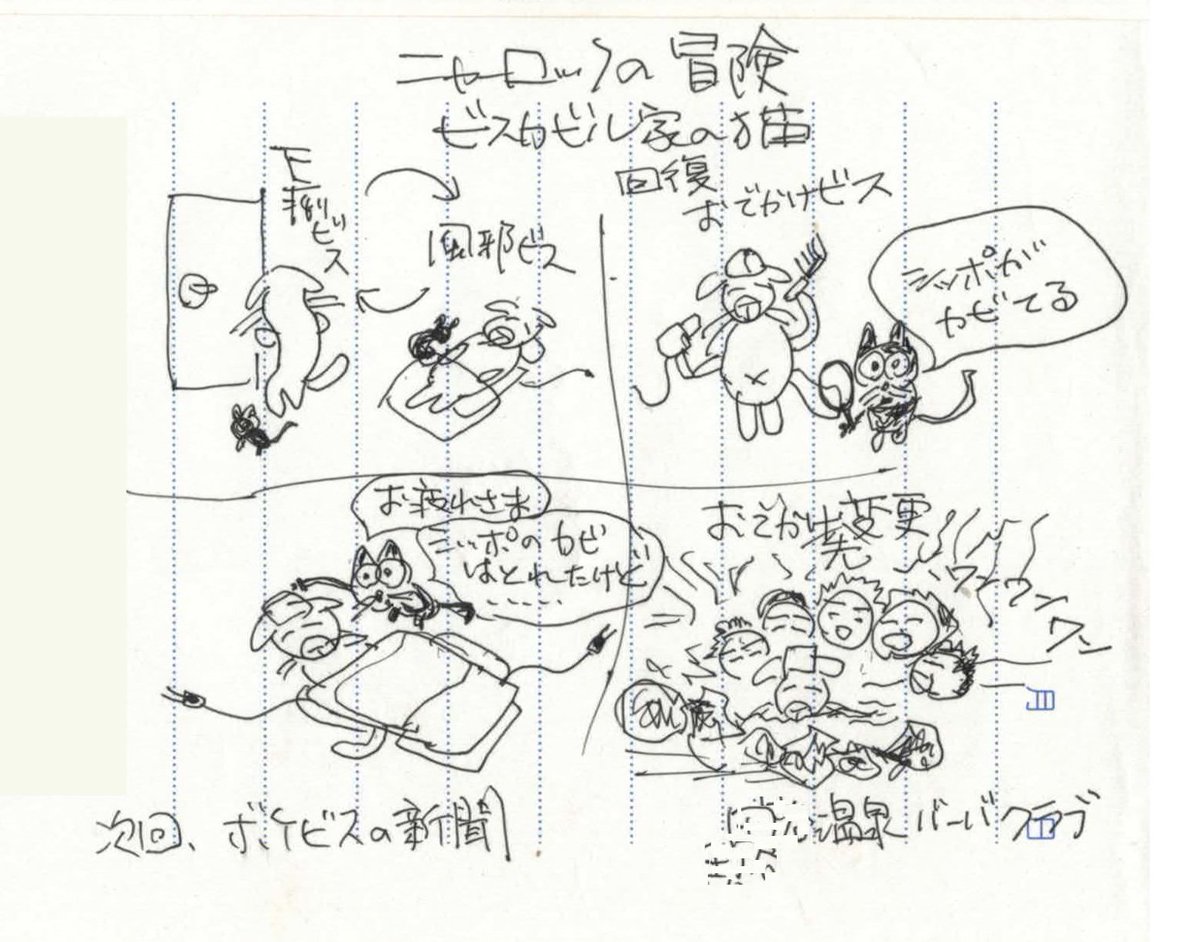 ニャーロックの冒険
ビスカビル家の猫
下痢ビス
風邪ビス
回復
おでかけビス
シッポが
カビてる
お疲れさま
シッポのカビ
はとれたけど
‥‥‥
おでかけ先変更
ワン
ワン
ワン
月
日
次回、ボケビスの新聞
温泉バーバクラブ